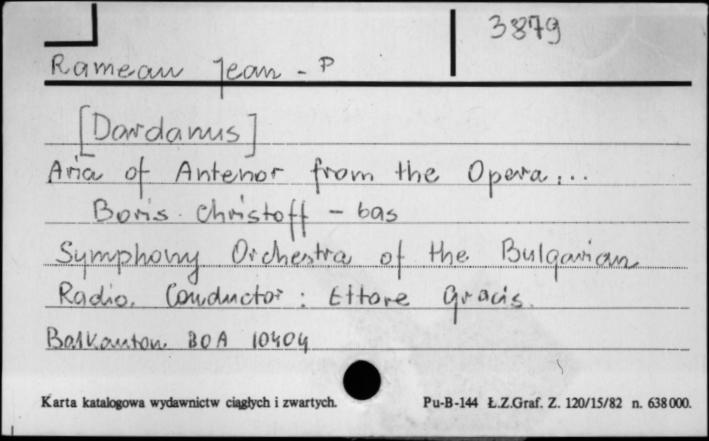 3879
Rameau Jean - P
[Dardanus]
Aria of Antenor from the Opera:..
Boris Christoff - bas
Symphony Orchestra of the Bulgarian
Radio. Conductor: Ettore Gracis.
Balkanton BOA 10404
Karta katalogowa wydawnictw ciągłych i zwartych. Pu-B-144 Ł.Z.Graf. Z. 120/15/82 n. 638000.